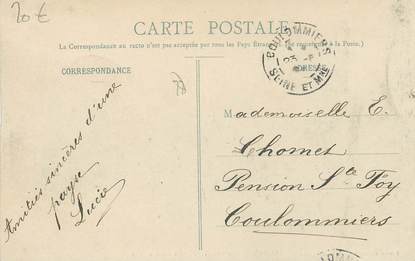 20 €
CARTE POSTALE
La Correspondance au recto n'est pas acceptée par tous les Pays Étrangers. (Se renseigner à la Poste.)
CORRESPONDANCE
ADRESSE
COULOMMIERS
23
SEINE ET MNE
Amitiés sincères d'une
payse
Lucie
Mademoiselle E.
Chomet
Pension Ste Foy
Coulommiers